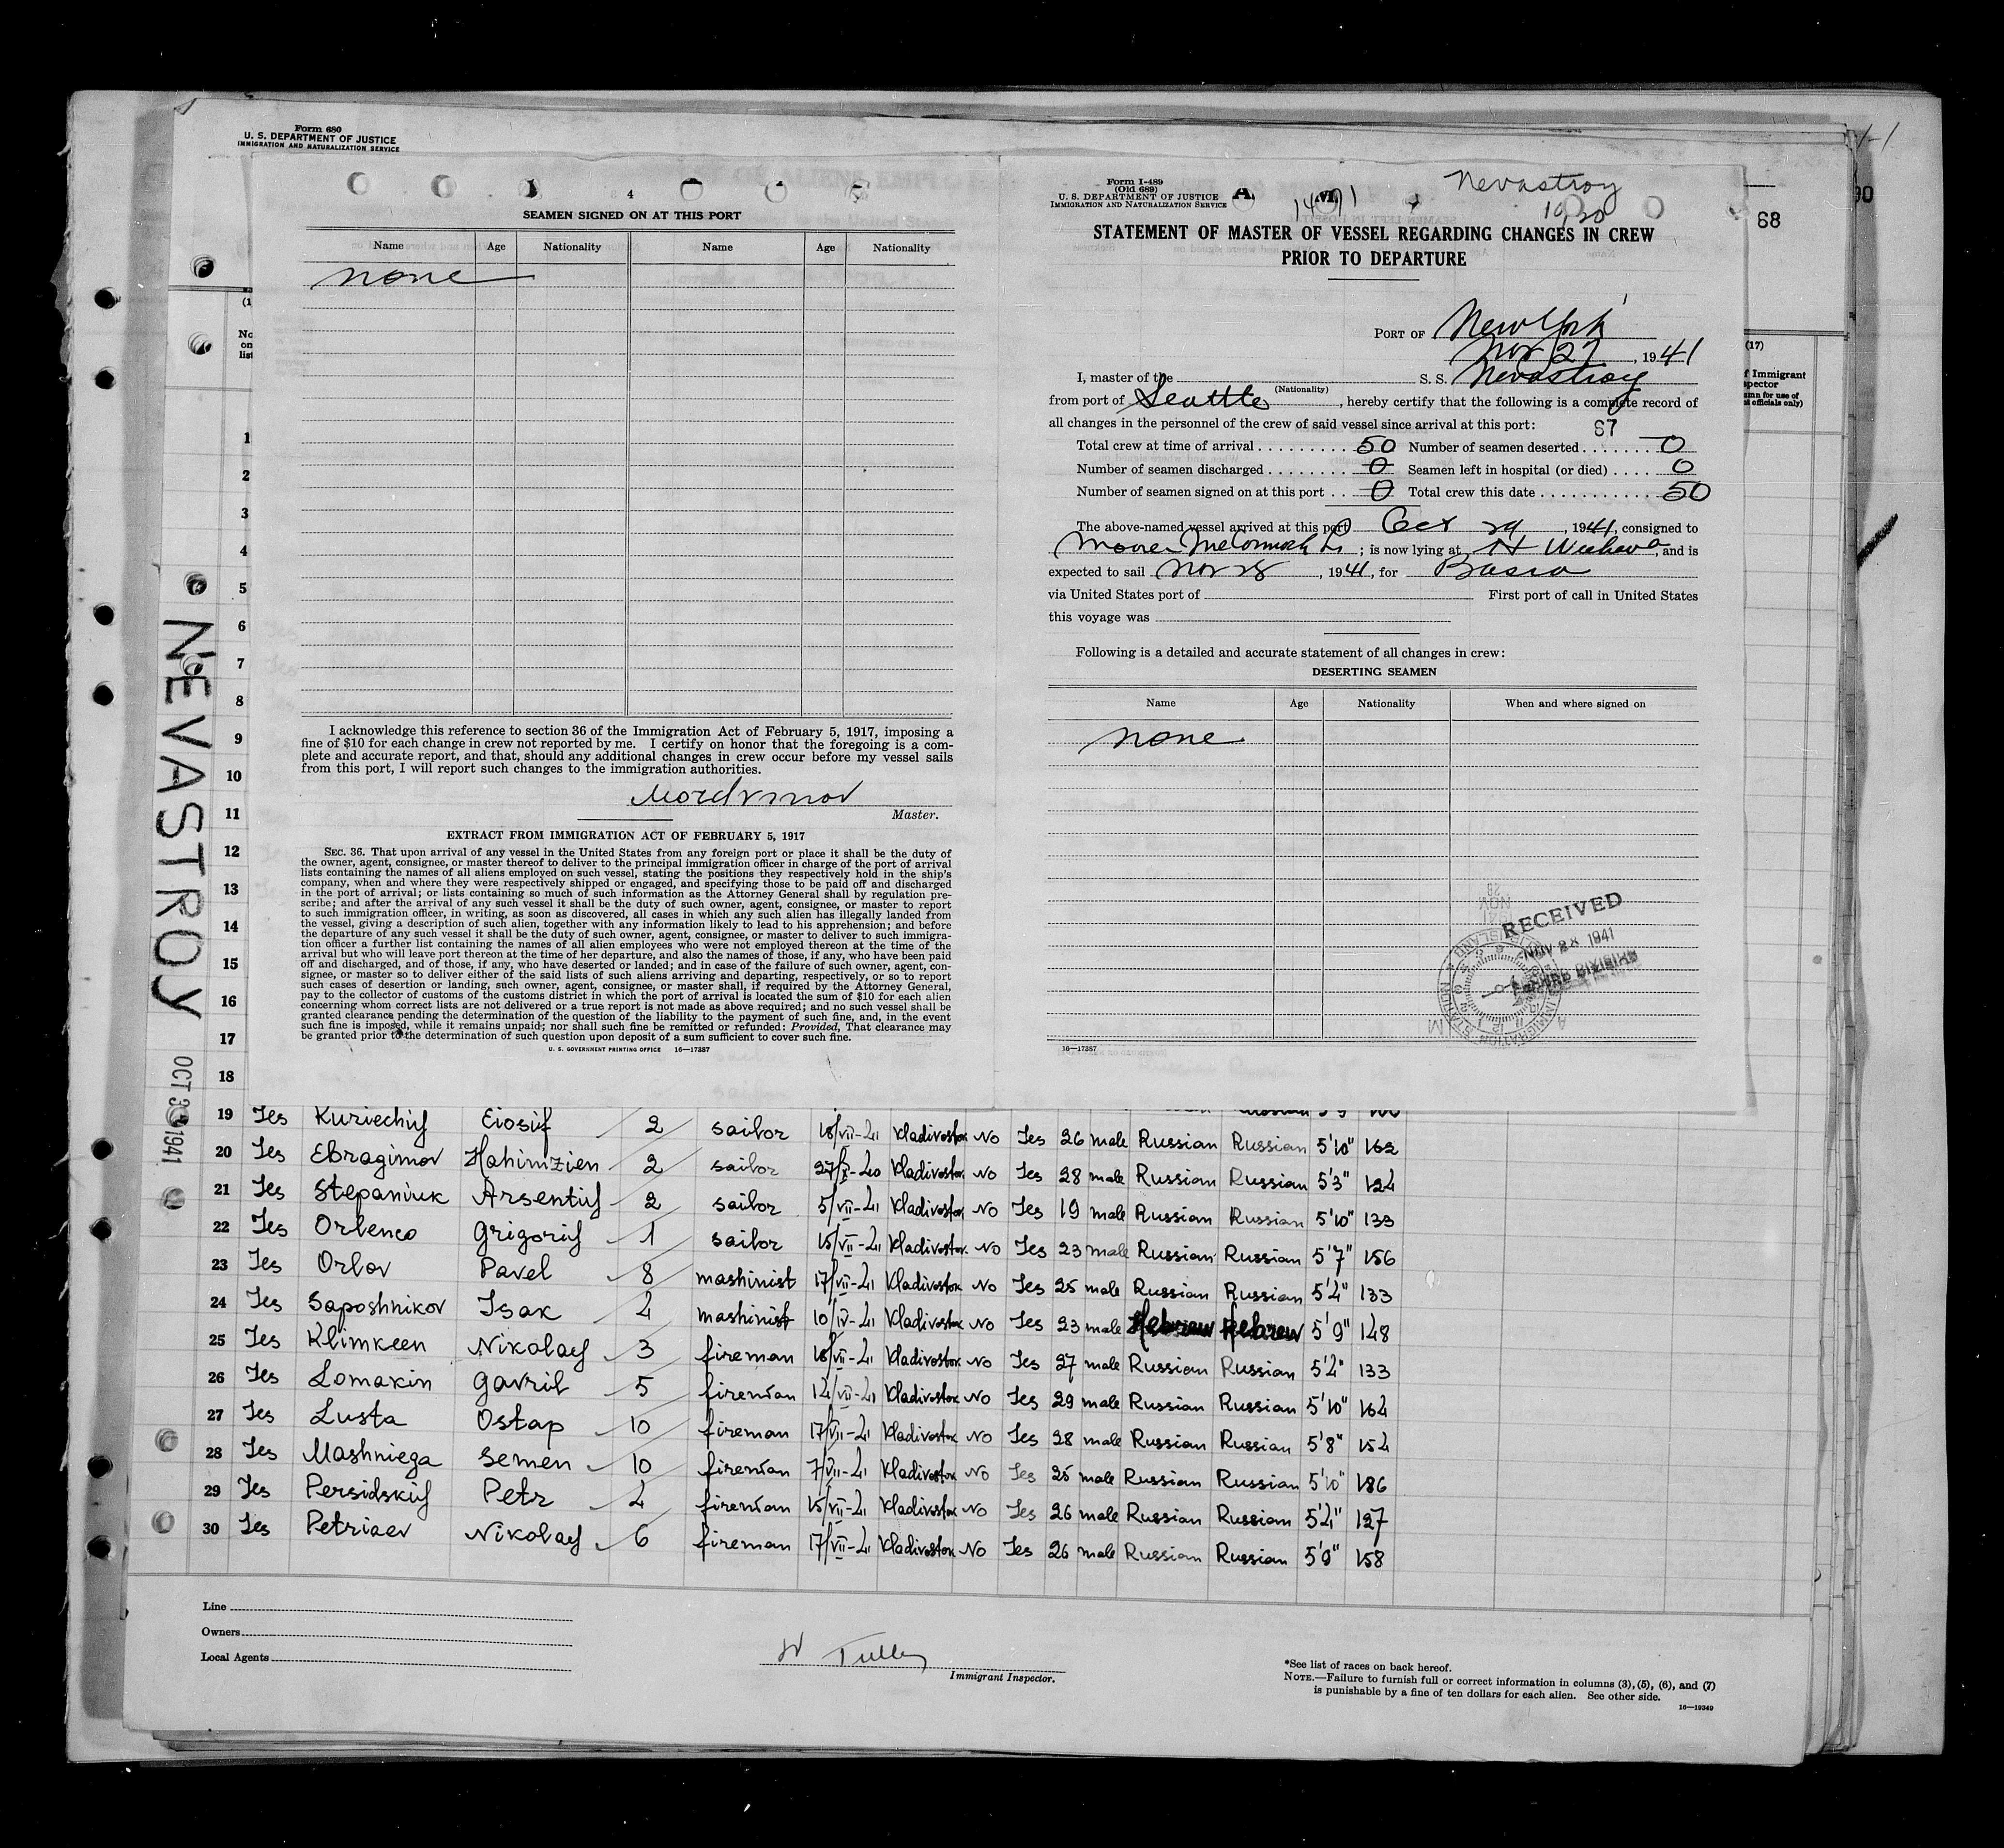 Form 680
U. S. DEPARTMENT OF JUSTICE
IMMIGRATION AND NATURALIZATION SERVICE
4
SEAMEN SIGNED ON AT THIS PORT
Name Age Nationality Name Age Nationality
none
I acknowledge this reference to section 36 of the Immigration Act of February 5, 1917, imposing a
fine of $10 for each change in crew not reported by me. I certify on honor that the foregoing is a com-
plete and accurate report, and that, should any additional changes in crew occur before my vessel sails
from this port, I will report such changes to the immigration authorities.
Mordvinov
Master.
EXTRACT FROM IMMIGRATION ACT OF FEBRUARY 5, 1917
SEC. 36. That upon arrival of any vessel in the United States from any foreign port or place it shall be the duty of
the owner, agent, consignee, or master thereof to deliver to the principal immigration officer in charge of the port of arrival
lists containing the names of all aliens employed on such vessel, stating the positions they respectively hold in the ship's
company, when and where they were respectively shipped or engaged, and specifying those to be paid off and discharged
in the port of arrival; or lists containing so much of such information as the Attorney General shall by regulation pre-
scribe; and after the arrival of any such vessel it shall be the duty of such owner, agent, consignee, or master to report
to such immigration officer, in writing, as soon as discovered, all cases in which any such alien has illegally landed from
the vessel, giving a description of such alien, together with any information likely to lead to his apprehension; and before
the departure of any such vessel it shall be the duty of such owner, agent, consignee, or master to deliver to such immigra-
tion officer a further list containing the names of all alien employees who were not employed thereon at the time of the
arrival but who will leave port thereon at the time of her departure, and also the names of those, if any, who have been paid
off and discharged, and of those, if any, who have deserted or landed; and in case of the failure of such owner, agent, con-
signee, or master so to deliver either of the said lists of such aliens arriving and departing, respectively, or so to report
such cases of desertion or landing, such owner, agent, consignee, or master shall, if required by the Attorney General,
pay to the collector of customs of the customs district in which the port of arrival is located the sum of $10 for each alien
concerning whom correct lists are not delivered or a true report is not made as above required; and no such vessel shall be
granted clearance pending the determination of the question of the liability to the payment of such fine, and, in the event
such fine is imposed, while it remains unpaid; nor shall such fine be remitted or refunded: Provided, That clearance may
be granted prior to the determination of such question upon deposit of a sum sufficient to cover such fine.
U. S. GOVERNMENT PRINTING OFFICE 16—17387
Form I-489
(Old 689)
U. S. DEPARTMENT OF JUSTICE
IMMIGRATION AND NATURALIZATION SERVICE
A. M.
Nevastroy
STATEMENT OF MASTER OF VESSEL REGARDING CHANGES IN CREW
PRIOR TO DEPARTURE
PORT OF New York
Nov 27, 1941
I, master of the S. S. Nevastroy
(Nationality)
from port of Seattle, hereby certify that the following is a complete record of
all changes in the personnel of the crew of said vessel since arrival at this port:
67
Total crew at time of arrival 50 Number of seamen deserted 0
Number of seamen discharged 0 Seamen left in hospital (or died) 0
Number of seamen signed on at this port 0 Total crew this date 50
The above-named vessel arrived at this port Oct 29, 1941, consigned to
Moore McCormack L; is now lying at and is
expected to sail Nov 28, 1941, for Basra
via United States port of First port of call in United States
this voyage was
Following is a detailed and accurate statement of all changes in crew:
DESERTING SEAMEN
Name Age Nationality When and where signed on
none
RECEIVED
NOV 28 1941
16—17387
68
90
(17)
NEVASTROY
OCT 3 1941
1
2
3
4
5
6
7
8
9
10
11
12
13
14
15
16
17
18
19 Ies Kuriechij Eiosif 2 sailor 18/VII-41 Vladivostok No Ies 26 male Russian Russian 5'10" 162
20 Ies Ebragimov Hahimzien 2 sailor 27/X-40 Vladivostok No Ies 28 male Russian Russian 5'3" 124
21 Ies Stepaniuk Arsentij 2 sailor 5/VII-41 Vladivostok No Ies 19 male Russian Russian 5'10" 133
22 Ies Orlenco Grigorij 1 sailor 15/VII-41 Vladivostok No Ies 23 male Russian Russian 5'7" 156
23 Ies Orlov Pavel 8 mashinist 17/VII-41 Vladivostok No Ies 25 male Russian Russian 5'4" 133
24 Ies Saposhnikov Isak 4 mashinist 10/IV-41 Vladivostok No Ies 23 male Hebrew Hebrew 5'9" 148
25 Ies Klimkeen Nikolaj 3 fireman 18/VII-41 Vladivostok No Ies 27 male Russian Russian 5'4" 133
26 Ies Lomakin Gavril 5 fireman 14/VII-41 Vladivostok No Ies 29 male Russian Russian 5'10" 164
27 Ies Lusta Ostap 10 fireman 17/VII-41 Vladivostok No Ies 28 male Russian Russian 5'8" 154
28 Ies Mashniega Semen 10 fireman 7/VII-41 Vladivostok No Ies 25 male Russian Russian 5'10" 186
29 Ies Persidskij Petr 4 fireman 15/VII-41 Vladivostok No Ies 26 male Russian Russian 5'4" 127
30 Ies Petriaev Nikolaj 6 fireman 17/VII-41 Vladivostok No Ies 26 male Russian Russian 5'9" 158
Line
Owners
Local Agents
W Tulley
Immigrant Inspector.
*See list of races on back hereof.
NOTE.—Failure to furnish full or correct information in columns (3), (5), (6), and (7)
is punishable by a fine of ten dollars for each alien. See other side.
16—19349